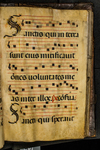 Sanctis qui in terra
sunt eius mirificavit
omnes voluntates me
as inter illos
Sancti qui sperant